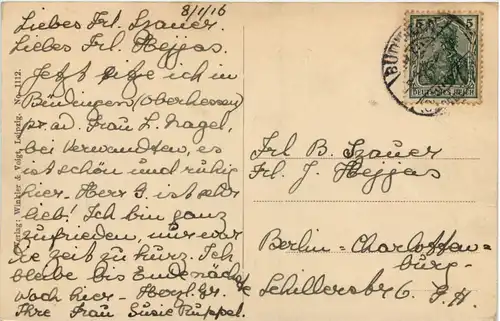 8/1/16
Liebes Frl. Szauer.
Liebes Frl. Hejjas.
Jetzt sitze ich in
Büdingen (Oberhessen)
pr. ad. Frau L. Nagel,
bei Verwandten, es
ist schön und ruhig
hier - Herr G. ist sehr
lieb! Ich bin ganz
zufrieden, nur war
die Zeit zu kurz. Ich
bleibe bis Ende nächste
Woch hier - Herzl. Gr.
Ihre Frau Susie Ruppel.
Verlag: Winkler & Voigt, Leipzig. No. 1112.
5 5
DEUTSCHES REICH
BÜDINGEN
Frl B. Szauer
Frl. J. Hejjas
Berlin = Charlotten =
burg -
Schillerstr 6. G.H.